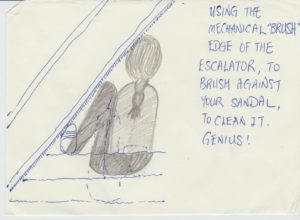 USING THE
MECHANICAL "BRUSH"
EDGE OF THE
ESCALATOR, TO
BRUSH AGAINST
YOUR SANDAL,
TO CLEAN IT.
GENIUS!